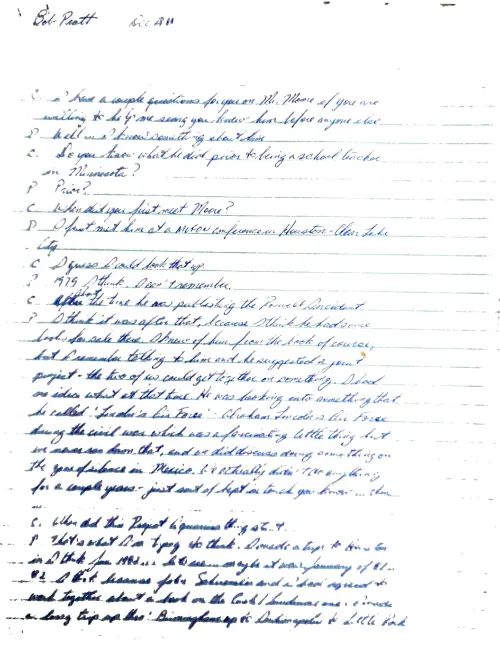 Bob Pratt
C I have a couple questions for you on Mr. Moore if you are
willing to help me seeing you knew him before anyone else
P Well ... I know something about him
C. Do you know what he did prior to being a school teacher
in Minnesota?
P Prior?
C When did you first meet Moore?
P I first met him at a MUFON conference in Houston - Clear Lake
City
C I guess I could look that up.
P 1979 I think. I can't remember.
C about the time he was publishing the Roswell Incident
P I think it was after that, because I think he had some
books for sale there. I knew of him from the book of course,
but I remember talking to him and he suggested a joint
project - the two of us could get together on something. I had
no idea what at that time. He was looking into something that
he called 'Lincoln's Air Force' - Abraham Lincoln's Air Force
during the civil war which was a fascinating little thing but
we never ran down that, and we did discuss doing something on
the zone of silence in Mexico. We actually didn't do anything
for a couple years - just sort of kept in touch you know ... then
...
C. When did this Project Aquarius thing start
P That's what I'm trying to think. I made a trip to Houston
in I think Jan 1982 ... let's see ... maybe it was January of 81 -
82 I think because John Schuessler and I had agreed to
work together about a book on the Cash/Landrum case. I made
a long trip up thru Birmingham up to Indianapolis to Little Rock